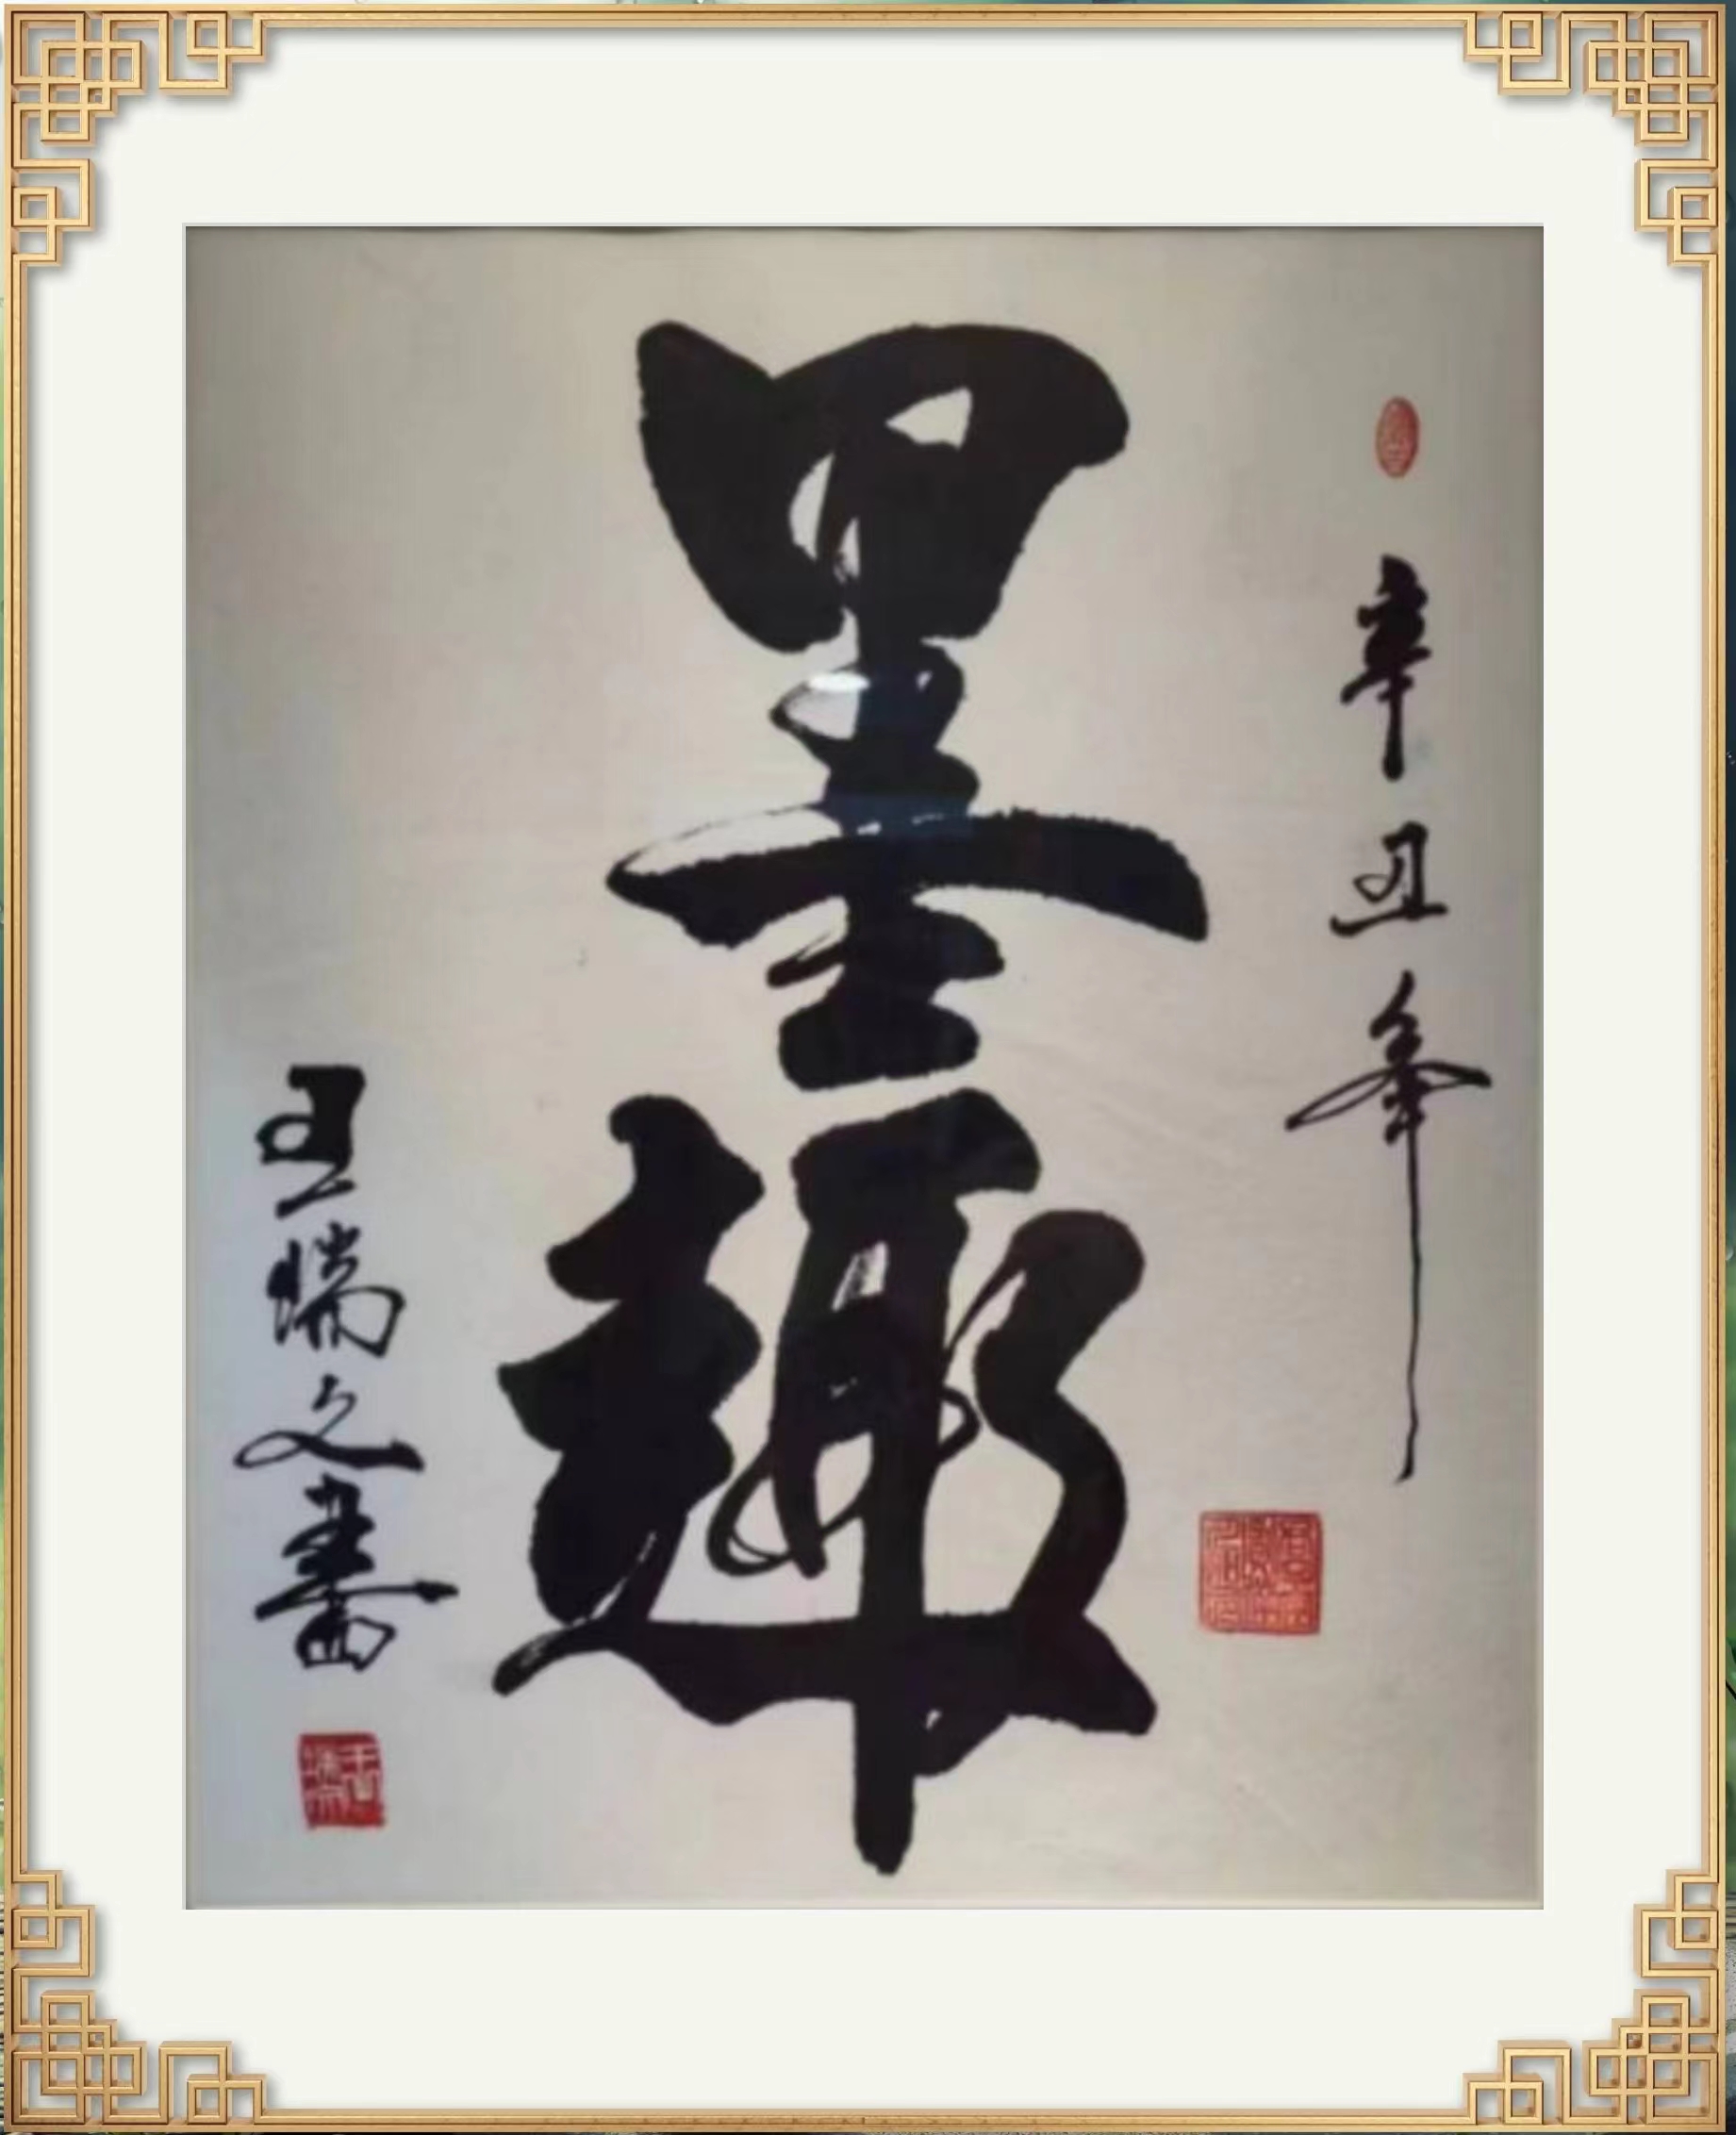 辛丑年
墨趣
王瑞文書